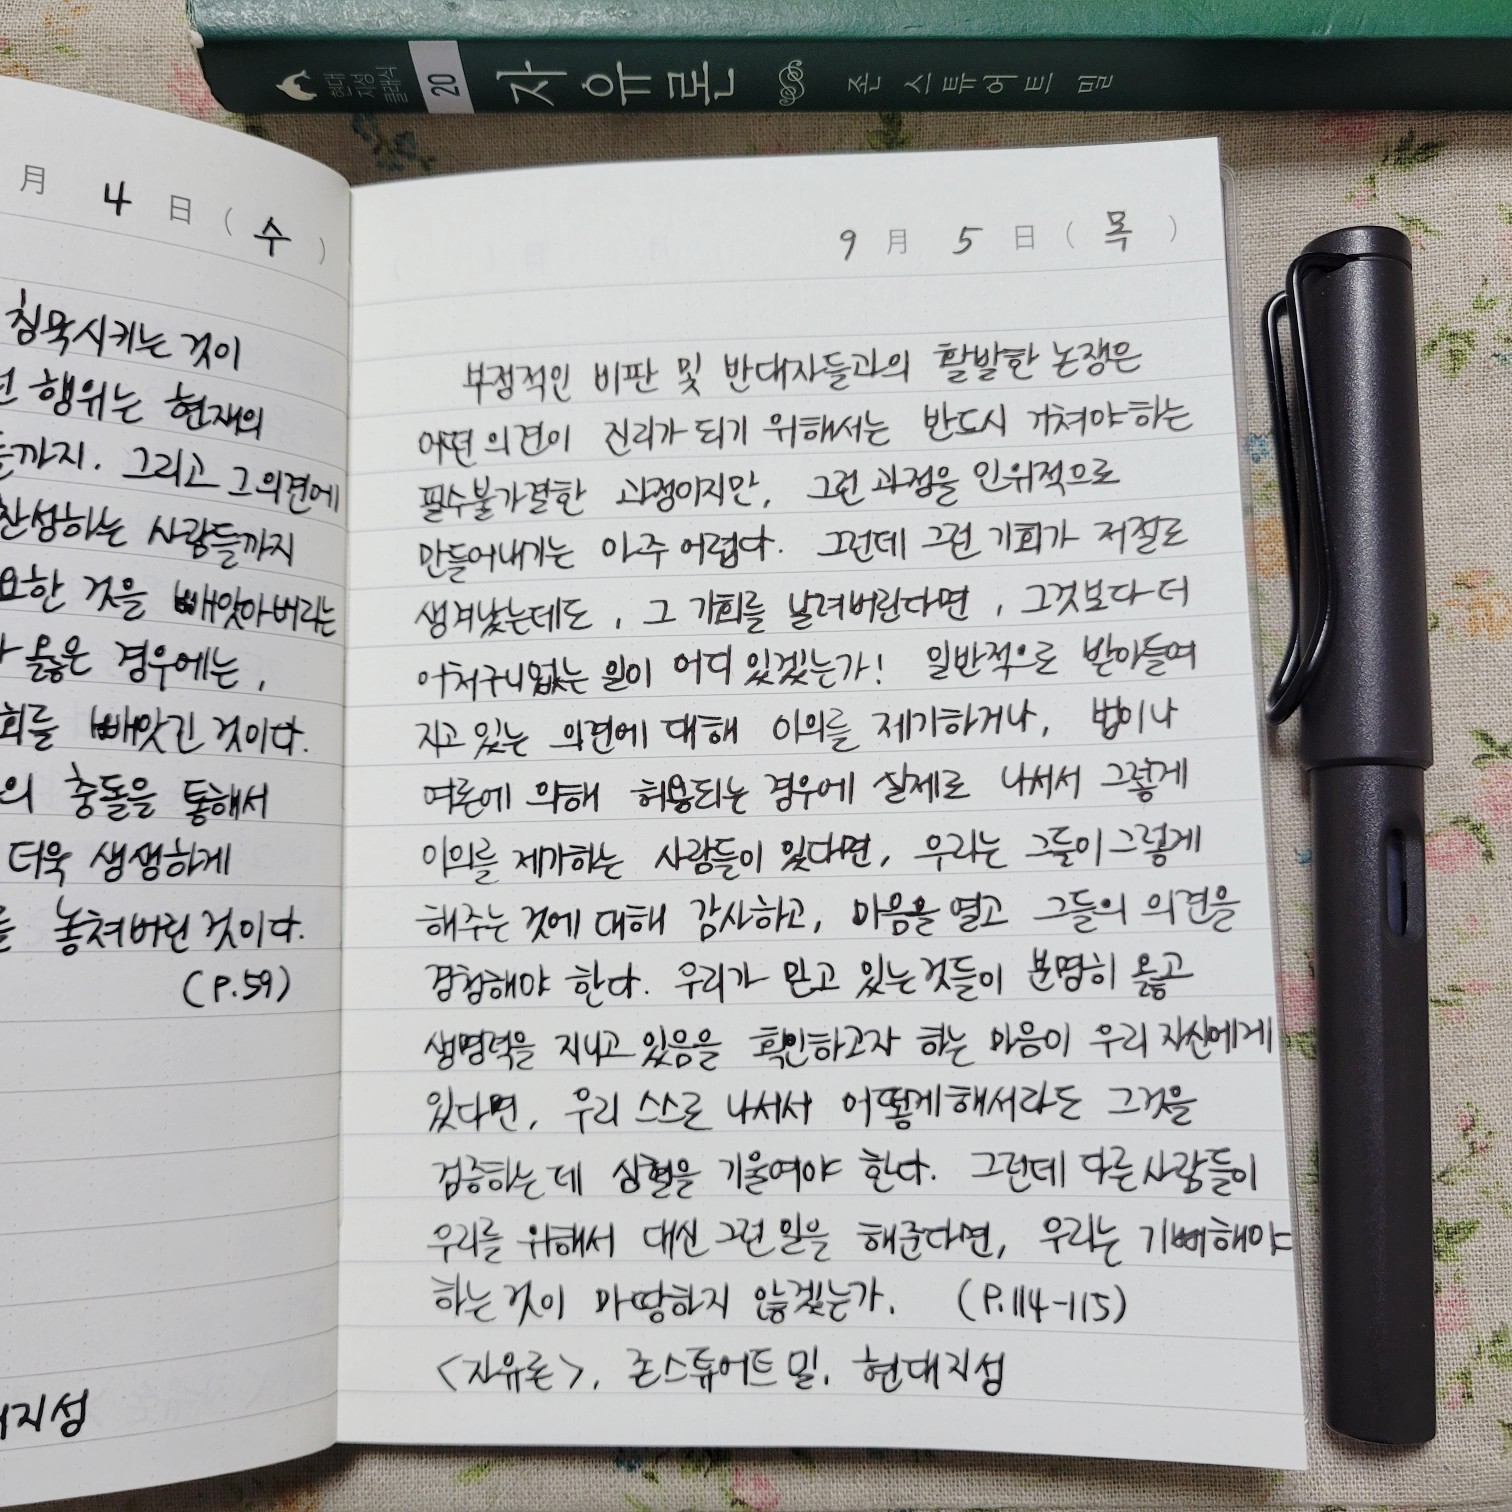 현대
지성
클래식
20
자유론
존 스튜어트 밀
月 4 日 ( 수 )
침묵시키는 것이
행위는 현재의
까지. 그리고 그 의견에
찬성하는 사람들까지
요한 것을 빼앗아버리는
옳은 경우에는,
회를 빼앗긴 것이다.
의 충돌을 통해서
더욱 생생하게
를 놓쳐버린 것이다.
(P.59)
지성
9 月 5 日 ( 목 )
부정적인 비판 및 반대자들과의 활발한 논쟁은
어떤 의견이 진리가 되기 위해서는 반드시 거쳐야 하는
필수불가결한 과정이지만, 그런 과정을 인위적으로
만들어내기는 아주 어렵다. 그런데 그런 기회가 저절로
생겨났는데도, 그 기회를 날려버린다면, 그것보다 더
어처구니없는 일이 어디 있겠는가! 일반적으로 받아들여
지고 있는 의견에 대해 이의를 제기하거나, 법이나
여론에 의해 허용되는 경우에 실제로 나서서 그렇게
이의를 제기하는 사람들이 있다면, 우리는 그들이 그렇게
해주는 것에 대해 감사하고, 마음을 열고 그들의 의견을
경청해야 한다. 우리가 믿고 있는 것들이 분명히 옳고
생명력을 지니고 있음을 확인하고자 하는 마음이 우리 자신에게
있다면, 우리 스스로 나서서 어떻게 해서라도 그것을
검증하는 데 심혈을 기울여야 한다. 그런데 다른 사람들이
우리를 위해서 대신 그런 일을 해준다면, 우리는 기뻐해야
하는 것이 마땅하지 않겠는가. (P.114-115)
<자유론>, 존 스튜어트 밀, 현대지성